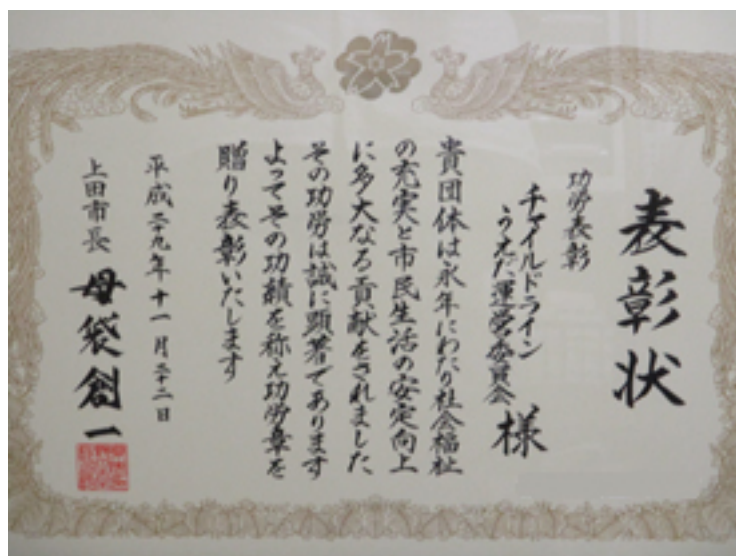 表彰状
功労表彰
チャイルドライン
うえだ運営委員会
様
貴団体は永年にわたり社会福祉
の充実と市民生活の安定向上
に多大なる貢献をされました
その功労は誠に顕著であります
よってその功績を称え功労章を
贈り表彰いたします
平成二十九年十一月二十二日
上田市長 母袋創一